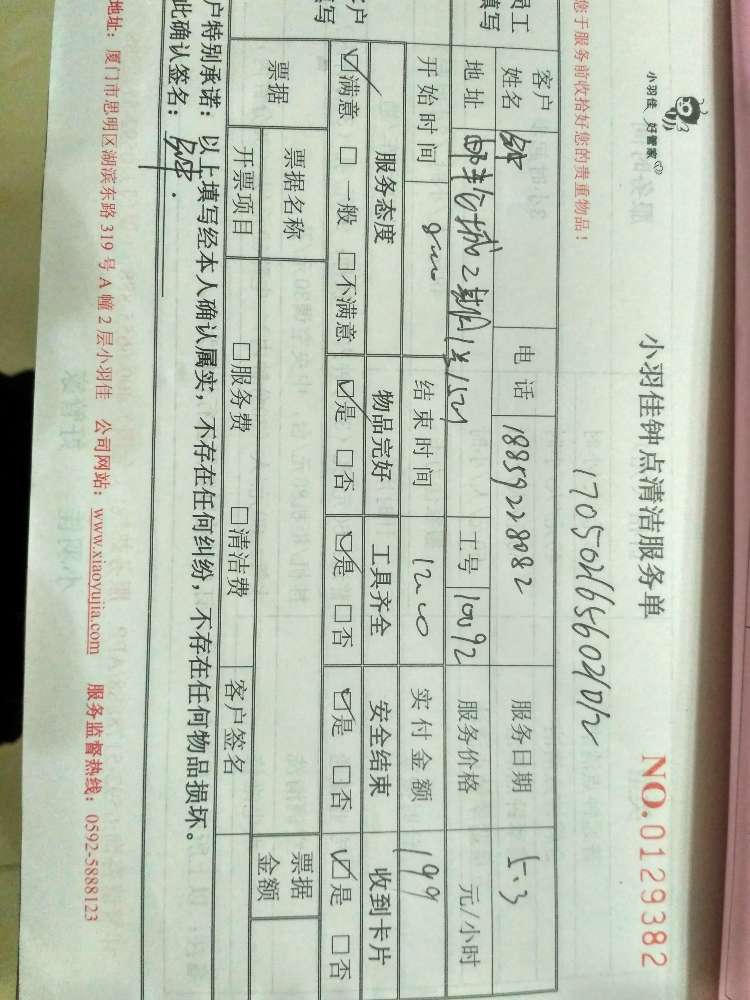 小羽佳 好管家
小羽佳钟点清洁服务单
NO.0129382
您于服务前收拾好您的贵重物品！
员工
填写
客户
姓名
电话
18859228082
服务日期
5.3
地址
工号
10092
服务价格
元/小时
开始时间
结束时间
实付金额
199
客户
填写
服务态度
物品完好
工具齐全
安全结束
收到卡片
☑满意 □一般 □不满意
☑是 □否
☑是 □否
☑是 □否
☑是 □否
票据
票据名称
票据
金额
开票项目
□服务费 □清洁费
客户签名
户特别承诺：以上填写经本人确认属实，不存在任何纠纷，不存在任何物品损坏。
此确认签名：
地址：厦门市思明区湖滨东路 319 号 A 幢 2 层小羽佳 公司网站：www.xiaoyujia.com 服务监督热线：0592-5888123